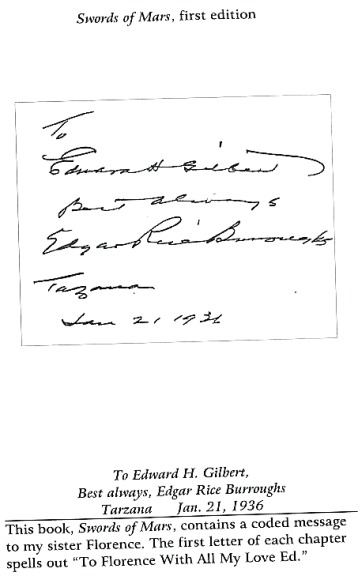 Swords of Mars, first edition
To
Edward H Gilbert
Best always
Edgar Rice Burroughs
Tarzana
Jan 21 1936
To Edward H. Gilbert,
Best always, Edgar Rice Burroughs
Tarzana Jan. 21, 1936
This book, Swords of Mars, contains a coded message
to my sister Florence. The first letter of each chapter
spells out “To Florence With All My Love Ed.”